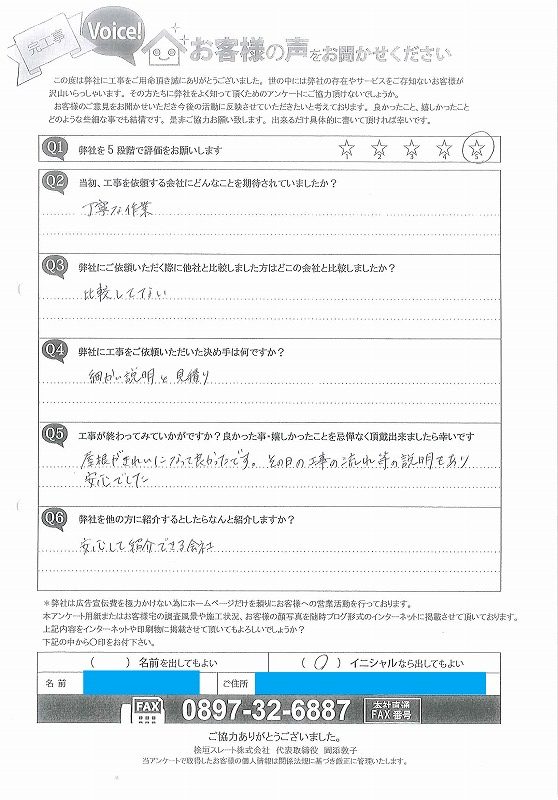 完工事
Voice!
お客様の声をお聞かせください
この度は弊社に工事をご用命頂き誠にありがとうございました。世の中には弊社の存在やサービスをご存知ないお客様が
沢山いらっしゃいます。その方たちに弊社をよく知って頂くためのアンケートにご協力頂けないでしょうか。
お客様のご意見をお聞かせいただき今後の活動に反映させていただきたいと考えております。良かったこと、嬉しかったこと
どのような些細な事でも結構です。是非ご協力お願い致します。出来るだけ具体的に書いて頂ければ幸いです。
Q1 弊社を5段階で評価をお願いします
1 2 3 4 5
Q2 当初、工事を依頼する会社にどんなことを期待されていましたか?
丁寧な作業
Q3 弊社にご依頼いただく際に他社と比較しました方はどこの会社と比較しましたか?
比較してない
Q4 弊社に工事をご依頼いただいた決め手は何ですか?
細かい説明と見積り
Q5 工事が終わってみていかがですか?良かった事・嬉しかったことを忌憚なく頂戴出来ましたら幸いです
屋根がきれいになって良かったです。その日の工事の流れ等の説明もあり
安心でした
Q6 弊社を他の方に紹介するとしたらなんと紹介しますか?
安心して紹介できる会社
*弊社は広告宣伝費を極力かけない為にホームページだけを頼りにお客様への営業活動を行っております。
本アンケート用紙またはお客様宅の調査風景や施工状況、お客様の顔写真を随時ブログ形式のインターネットに掲載させて頂いております。
上記内容をインターネットや印刷物に掲載させて頂いてもよろしいでしょうか?
下記の中から〇印をお付下さい。
( ) 名前を出してもよい
(〇) イニシャルなら出してもよい
名前
ご住所
FAX 0897-32-6887 本社直通 FAX番号
ご協力ありがとうございました。
桧垣スレート株式会社 代表取締役 岡添敦子
当アンケートで取得したお客様の個人情報は関係法規に基づき厳正に管理いたします。